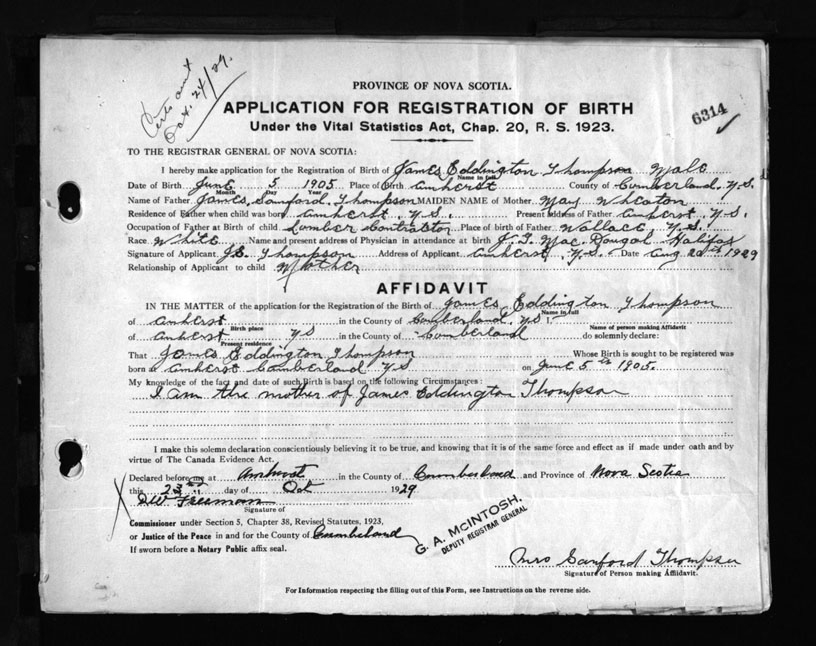 Oct. 24/29.
PROVINCE OF NOVA SCOTIA.
APPLICATION FOR REGISTRATION OF BIRTH
6314
Under the Vital Statistics Act, Chap. 20, R. S. 1923.
TO THE REGISTRAR GENERAL OF NOVA SCOTIA:
I hereby make application for the Registration of Birth of James Eddington Thompson Male
Name in full
Date of Birth June 5 1905 Place of Birth Amherst County of Cumberland, N.S.
Month Day Year
Name of Father James Sanford Thompson MAIDEN NAME of Mother May Wheaton
Residence of Father when child was born Amherst, N.S. Present address of Father Amherst, N.S.
Occupation of Father at Birth of child Lumber Contractor Place of birth of Father Wallace N.S.
Race White Name and present address of Physician in attendance at birth J. T. Mac Dougal Halifax
Signature of Applicant J.E. Thompson Address of Applicant Amherst, N.S. Date Aug 20th 1929
Relationship of Applicant to child Mother
AFFIDAVIT
IN THE MATTER of the application for the Registration of the Birth of James Eddington Thompson
Name in full
of Amherst in the County of Cumberland, N.S.
Birth place Name of person making Affidavit
of Amherst N S in the County of Cumberland do solemnly declare:
Present residence
That James Eddington Thompson Whose Birth is sought to be registered was
born at Amherst Cumberland N S on June 5th 1905.
My knowledge of the fact and date of such Birth is based on the following Circumstances:
I am the mother of James Eddington Thompson
I make this solemn declaration conscientiously believing it to be true, and knowing that it is of the same force and effect as if made under oath and by
virtue of The Canada Evidence Act.
Declared before me at Amherst in the County of Cumberland and Province of Nova Scotia
this 23rd day of Oct 1929
Freeman
Signature of
Commissioner under Section 5, Chapter 38, Revised Statutes, 1923,
or Justice of the Peace in and for the County of Cumberland
If sworn before a Notary Public affix seal.
G. A. McINTOSH.
DEPUTY REGISTRAR GENERAL
Mrs Sanford Thompson
Signature of Person making Affidavit.
For Information respecting the filling out of this Form, see Instructions on the reverse side.